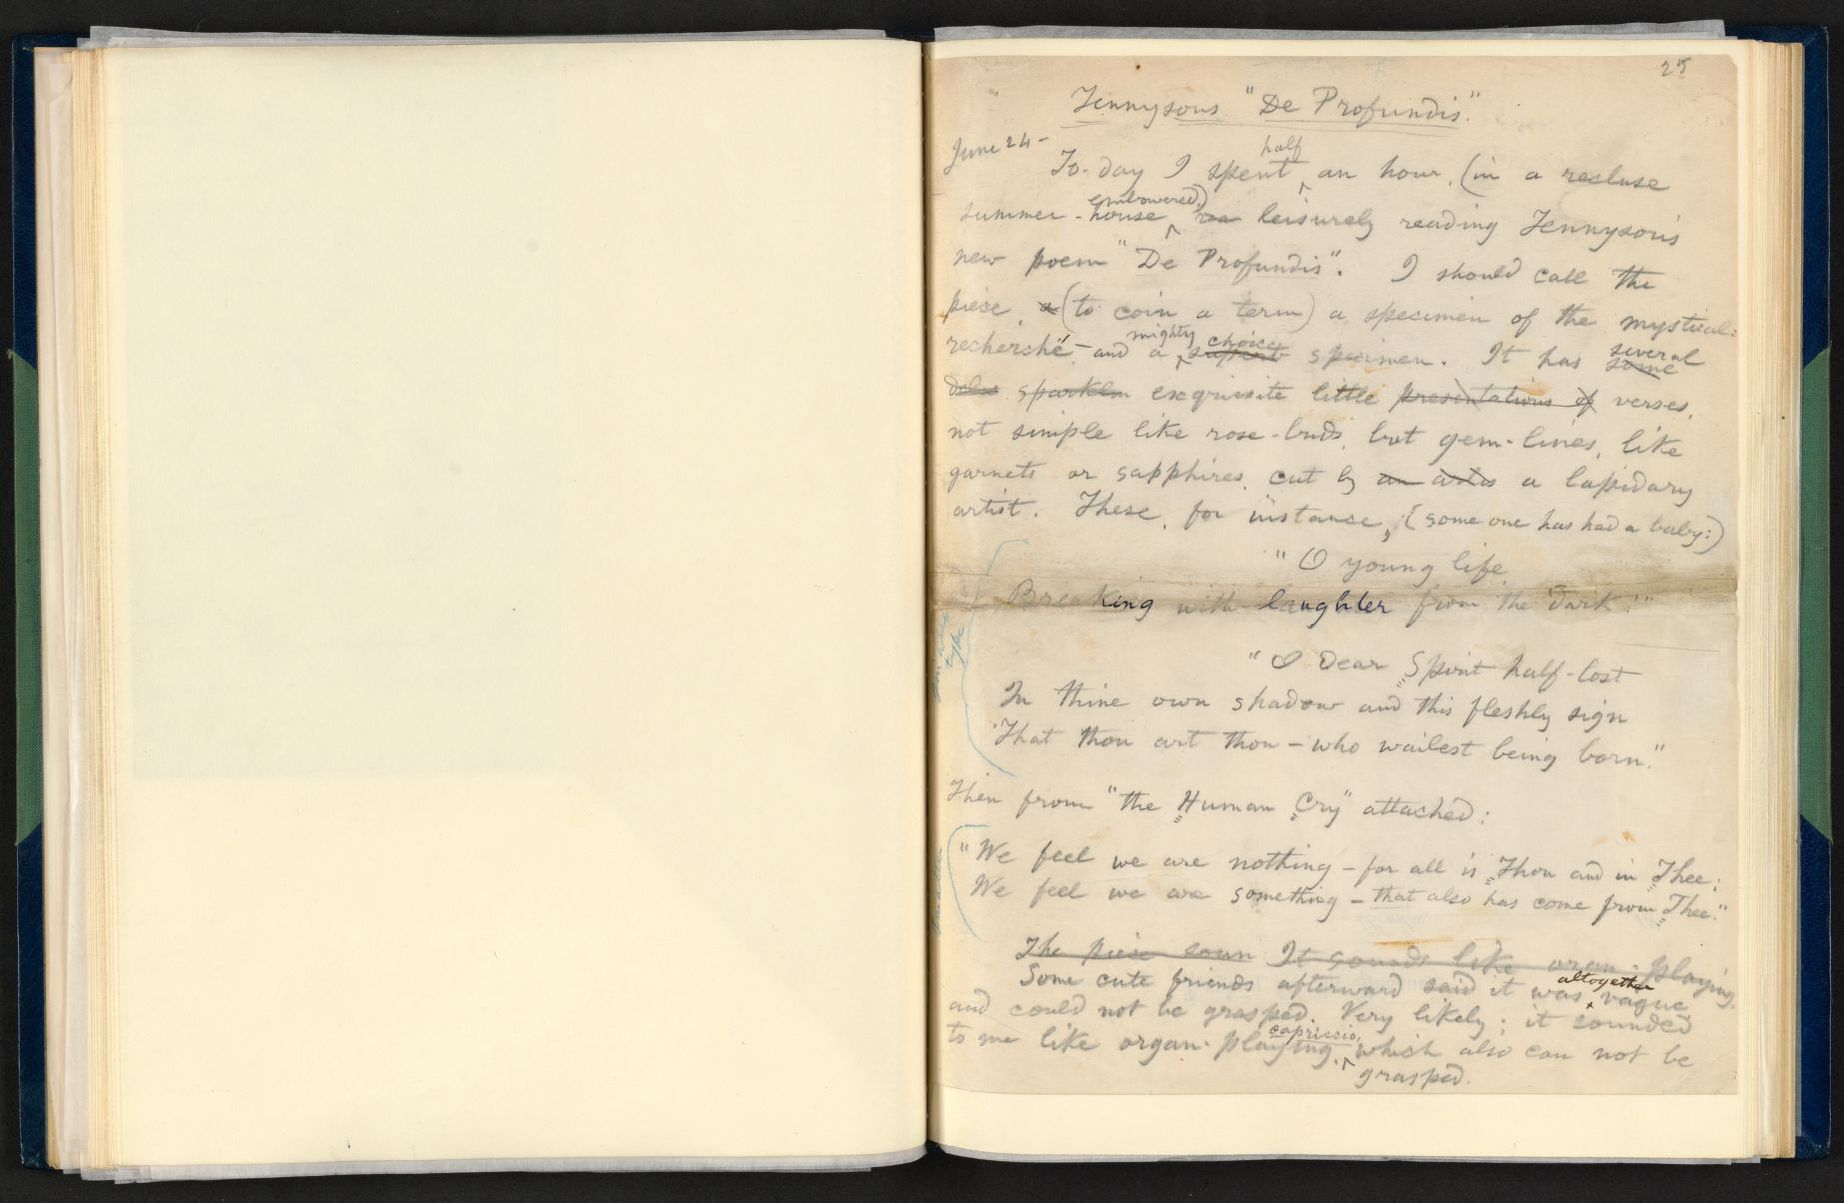 25
Tennysons "De Profundis."
June 24 -
half
To-day I spent ‸ an hour, (in a recluse
embowered,)
summer-house ‸ leisurely reading Tennyson's
new poem "De Profundis". I should call the
piece, a (to coin a term) a specimen of the mystical-
mighty choice several
recherché - and a ‸ superb specimen. It has some
sparklin exquisite little presentations of verses,
not simple like rose-buds, but gem-lines, like
garnets or sapphires, cut by an artis a lapidary
artist. These, for instance, (some one has had a baby:)
"O young life
Breaking with laughter from the dark!"
"O dear Spirit half-lost
In thine own shadow and this fleshly sign
That thou art thou - who wailest being born."
type
Then from "the Human Cry" attached:
"We feel we are nothing - for all is Thou and in Thee;
We feel we are something - that also has come from Thee."
The piece soun It sounds like organ-playing.
altogether
Some cute friends afterward said it was ‸ vague
and could not be grasped. Very likely; it sounded
capriccio,
to me like organ-playing, ‸ which also can not be
grasped.